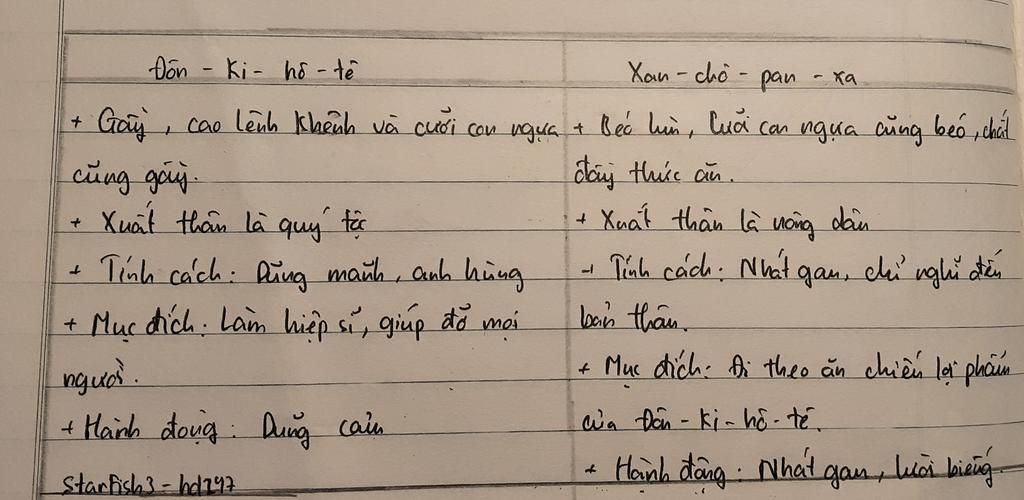 Đôn - Ki - hô - tê
+ Gầy, cao lênh khênh và cưỡi con ngựa
cũng gầy.
+ Xuất thân là quý tộc
+ Tính cách: Dũng mãnh, anh hùng
+ Mục đích: Làm hiệp sĩ, giúp đỡ mọi
người.
+ Hành động: Dũng cảm
Starfish3 - hd247
Xan - chô - pan - xa
+ Béo lùn, cưỡi con ngựa cũng béo, chất
đầy thức ăn.
+ Xuất thân là nông dân
+ Tính cách: Nhát gan, chỉ nghĩ đến
bản thân.
+ Mục đích: Đi theo ăn chiến lợi phẩm
của Đôn - Ki - hô - tê.
+ Hành động: Nhát gan, lười biếng.